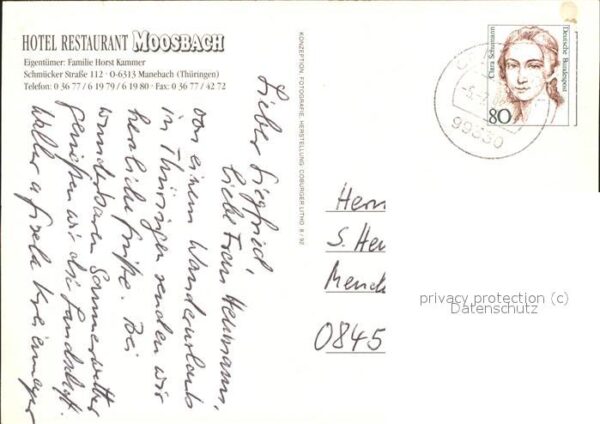 HOTEL RESTAURANT MOOSBACH
Eigentümer: Familie Horst Kammer
Schmücker Straße 112 · O-6313 Manebach (Thüringen)
Telefon: 0 36 77 / 6 19 79 / 6 19 80 · Fax: 0 36 77 / 42 72
Lieber Siegfried,
liebe Frau Heumann,
von einem Wanderurlaub
in Thüringen senden wir
herzliche Grüße. Bei
wunderbarem Sommerwetter
genießen wir die Landschaft.
KONZEPTION, FOTOGRAFIE, HERSTELLUNG: COBURGER LITHO 8 / 92
Clara Schumann
Deutsche Bundespost
80
99330
Herrn
S. Heu
Mende
0845
privacy protection (c)
Datenschutz